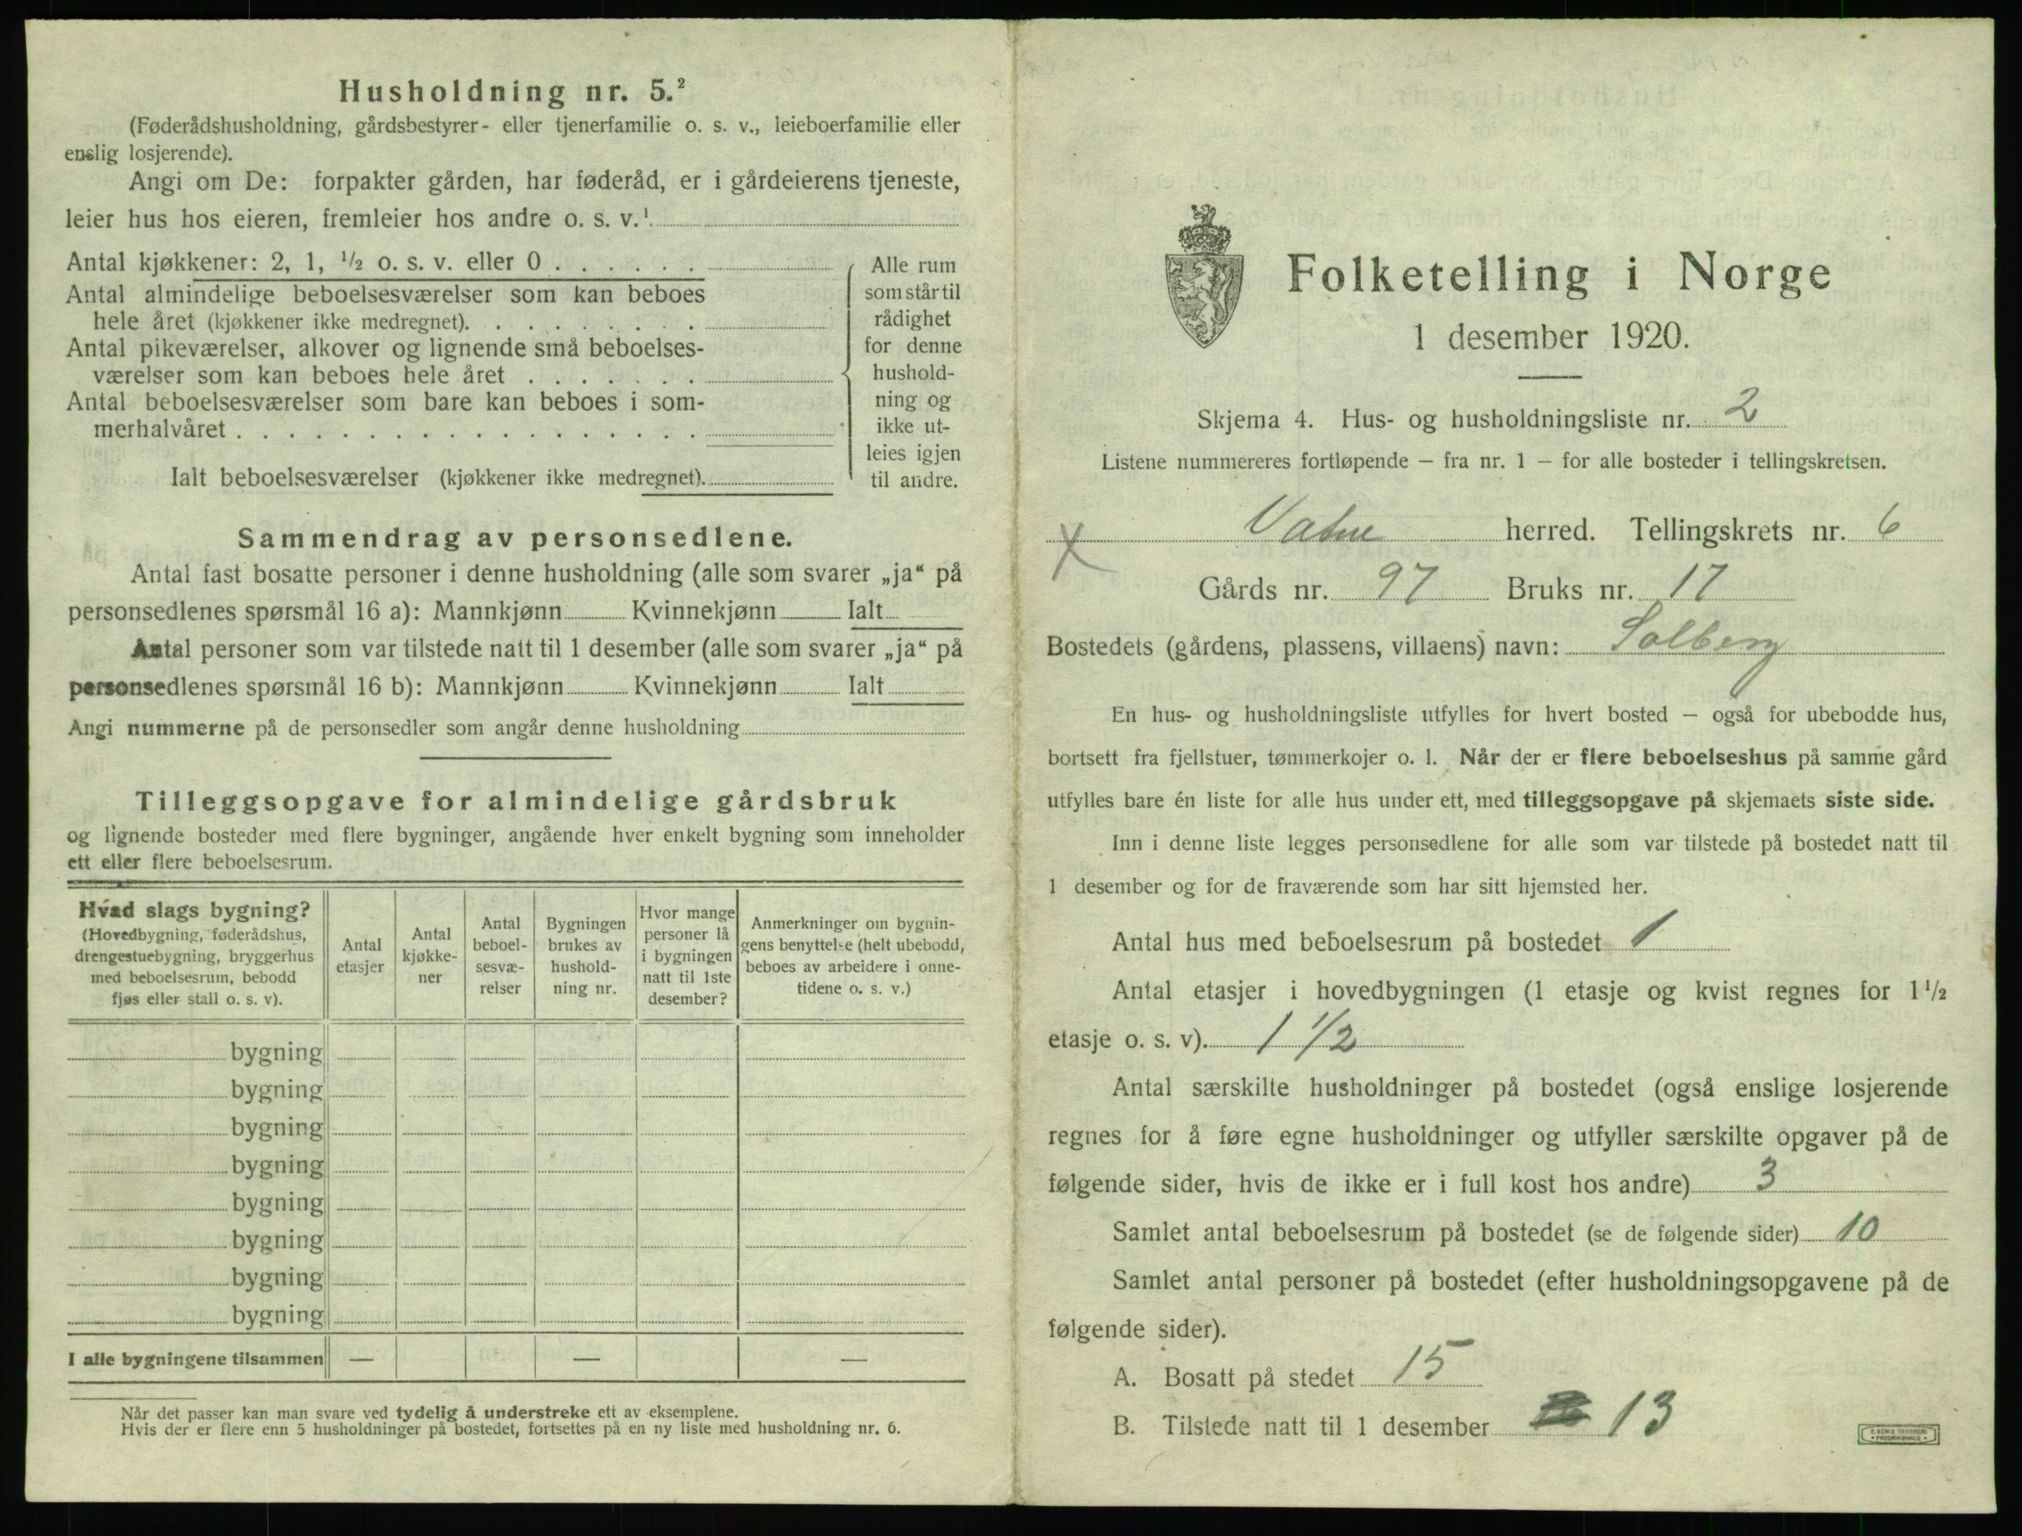 Husholdning nr. 5.²
(Føderådshusholdning, gårdsbestyrer- eller tjenerfamilie o. s. v., leieboerfamilie eller
enslig losjerende).
Angi om De: forpakter gården, har føderåd, er i gårdeierens tjeneste,
leier hus hos eieren, fremleier hos andre o. s. v.¹
Antal kjøkkener: 2, 1, ½ o. s. v. eller 0 . . . . . .
Antal almindelige beboelsesværelser som kan beboes
hele året (kjøkkener ikke medregnet). . . . . . . . .
Antal pikeværelser, alkover og lignende små beboelses-
værelser som kan beboes hele året . . . . . . .
Antal beboelsesværelser som bare kan beboes i som-
merhalvåret . . . . . . . . . . . . . . . . . .
Ialt beboelsesværelser (kjøkkener ikke medregnet).
Alle rum
som står til
rådighet
for denne
hushold-
ning og
ikke ut-
leies igjen
til andre.
Sammendrag av personsedlene.
Antal fast bosatte personer i denne husholdning (alle som svarer „ja“ på
personsedlenes spørsmål 16 a): Mannkjønn Kvinnekjønn Ialt
Antal personer som var tilstede natt til 1 desember (alle som svarer „ja“ på
personsedlenes spørsmål 16 b): Mannkjønn Kvinnekjønn Ialt
Angi nummerne på de personsedler som angår denne husholdning
Tilleggsopgave for almindelige gårdsbruk
og lignende bosteder med flere bygninger, angående hver enkelt bygning som inneholder
ett eller flere beboelsesrum.
Hvad slags bygning?
(Hovedbygning, føderådshus,
drengestuebygning, bryggerhus
med beboelsesrum, bebodd
fjøs eller stall o. s. v).
Antal
etasjer
Antal
kjøkke-
ner
Antal
beboel-
sesvæ-
relser
Bygningen
brukes av
hushold-
ning nr.
Hvor mange
personer lå
i bygningen
natt til 1ste
desember?
Anmerkninger om bygnin-
gens benyttelse (helt ubebodd,
beboes av arbeidere i onne-
tidene o. s. v.)
bygning
bygning
bygning
bygning
bygning
bygning
bygning
bygning
I alle bygningene tilsammen — — —
Når det passer kan man svare ved tydelig å understreke ett av eksemplene.
Hvis der er flere enn 5 husholdninger på bostedet, fortsettes på en ny liste med husholdning nr. 6.
Folketelling i Norge
1 desember 1920.
Skjema 4. Hus- og husholdningsliste nr. 2
Listene nummereres fortløpende — fra nr. 1 — for alle bosteder i tellingskretsen.
X Vatne herred. Tellingskrets nr. 6
Gårds nr. 97 Bruks nr. 17
Bostedets (gårdens, plassens, villaens) navn: Solberg
En hus- og husholdningsliste utfylles for hvert bosted — også for ubebodde hus,
bortsett fra fjellstuer, tømmerkojer o. l. Når der er flere beboelseshus på samme gård
utfylles bare én liste for alle hus under ett, med tilleggsopgave på skjemaets siste side.
Inn i denne liste legges personsedlene for alle som var tilstede på bostedet natt til
1 desember og for de fraværende som har sitt hjemsted her.
Antal hus med beboelsesrum på bostedet 1
Antal etasjer i hovedbygningen (1 etasje og kvist regnes for 1½
etasje o. s. v). 1 ½
Antal særskilte husholdninger på bostedet (også enslige losjerende
regnes for å føre egne husholdninger og utfyller særskilte opgaver på de
følgende sider, hvis de ikke er i full kost hos andre) 3
Samlet antal beboelsesrum på bostedet (se de følgende sider) 10
Samlet antal personer på bostedet (efter husholdningsopgavene på de
følgende sider).
A. Bosatt på stedet 15
B. Tilstede natt til 1 desember 13